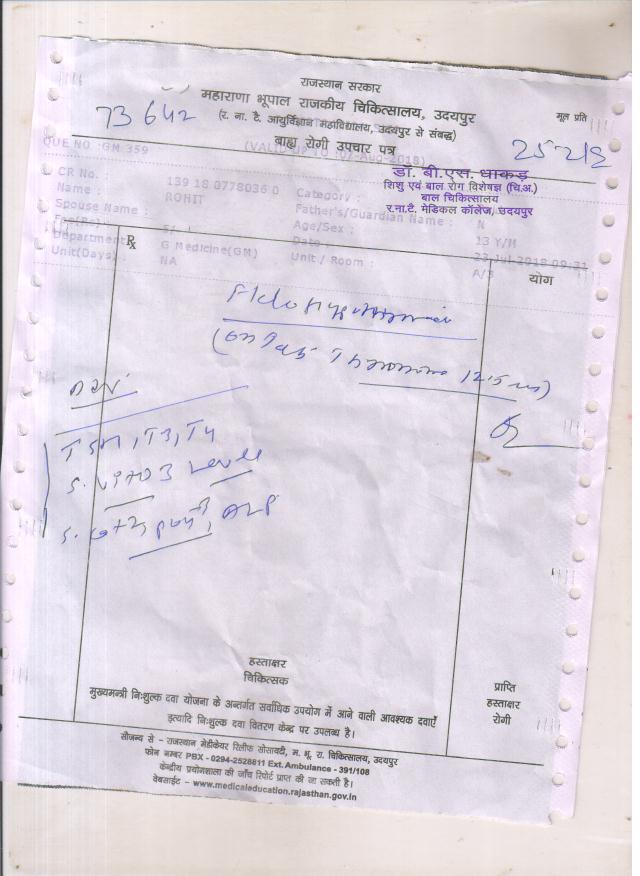 राजस्थान सरकार
महाराणा भूपाल राजकीय चिकित्सालय, उदयपुर
73642
(र. ना. टै. आयुर्विज्ञान महाविद्यालय, उदयपुर से संबद्ध)
मूल प्रति
बाह्य रोगी उपचार पत्र
QUE NO :GM 359
2018)
डॉ. बी.एस. धाकड़
शिशु एवं बाल रोग विशेषज्ञ (चि.अ.)
बाल चिकित्सालय
र.ना.टै. मेडिकल कॉलेज, उदयपुर
CR No. : 139 18 0778036 0 Category :
Name : ROHIT Father's/Guardian Name : N
Spouse Name : Age/Sex : 13 Y/M
Department G Medicine(GM) Date 23 Jul 2018 09:31
Unit(Days) : NA Unit / Room : A/
℞ योग
12.5
TSH, T3, T4
S. Vit D3 Level
ALP
हस्ताक्षर
चिकित्सक
प्राप्ति
हस्ताक्षर
रोगी
मुख्यमंत्री निःशुल्क दवा योजना के अन्तर्गत सर्वाधिक उपयोग में आने वाली आवश्यक दवाऐं
इत्यादि निःशुल्क दवा वितरण केन्द्र पर उपलब्ध है।
सौजन्य से - राजस्थान मेडीकेयर रिलीफ सोसायटी, म. भू. रा. चिकित्सालय, उदयपुर
फोन नम्बर PBX - 0294-2528811 Ext. Ambulance - 391/108
केन्द्रीय प्रयोगशाला की जाँच रिपोर्ट प्राप्त की जा सकती है।
वेबसाईट - www.medicaleducation.rajasthan.gov.in